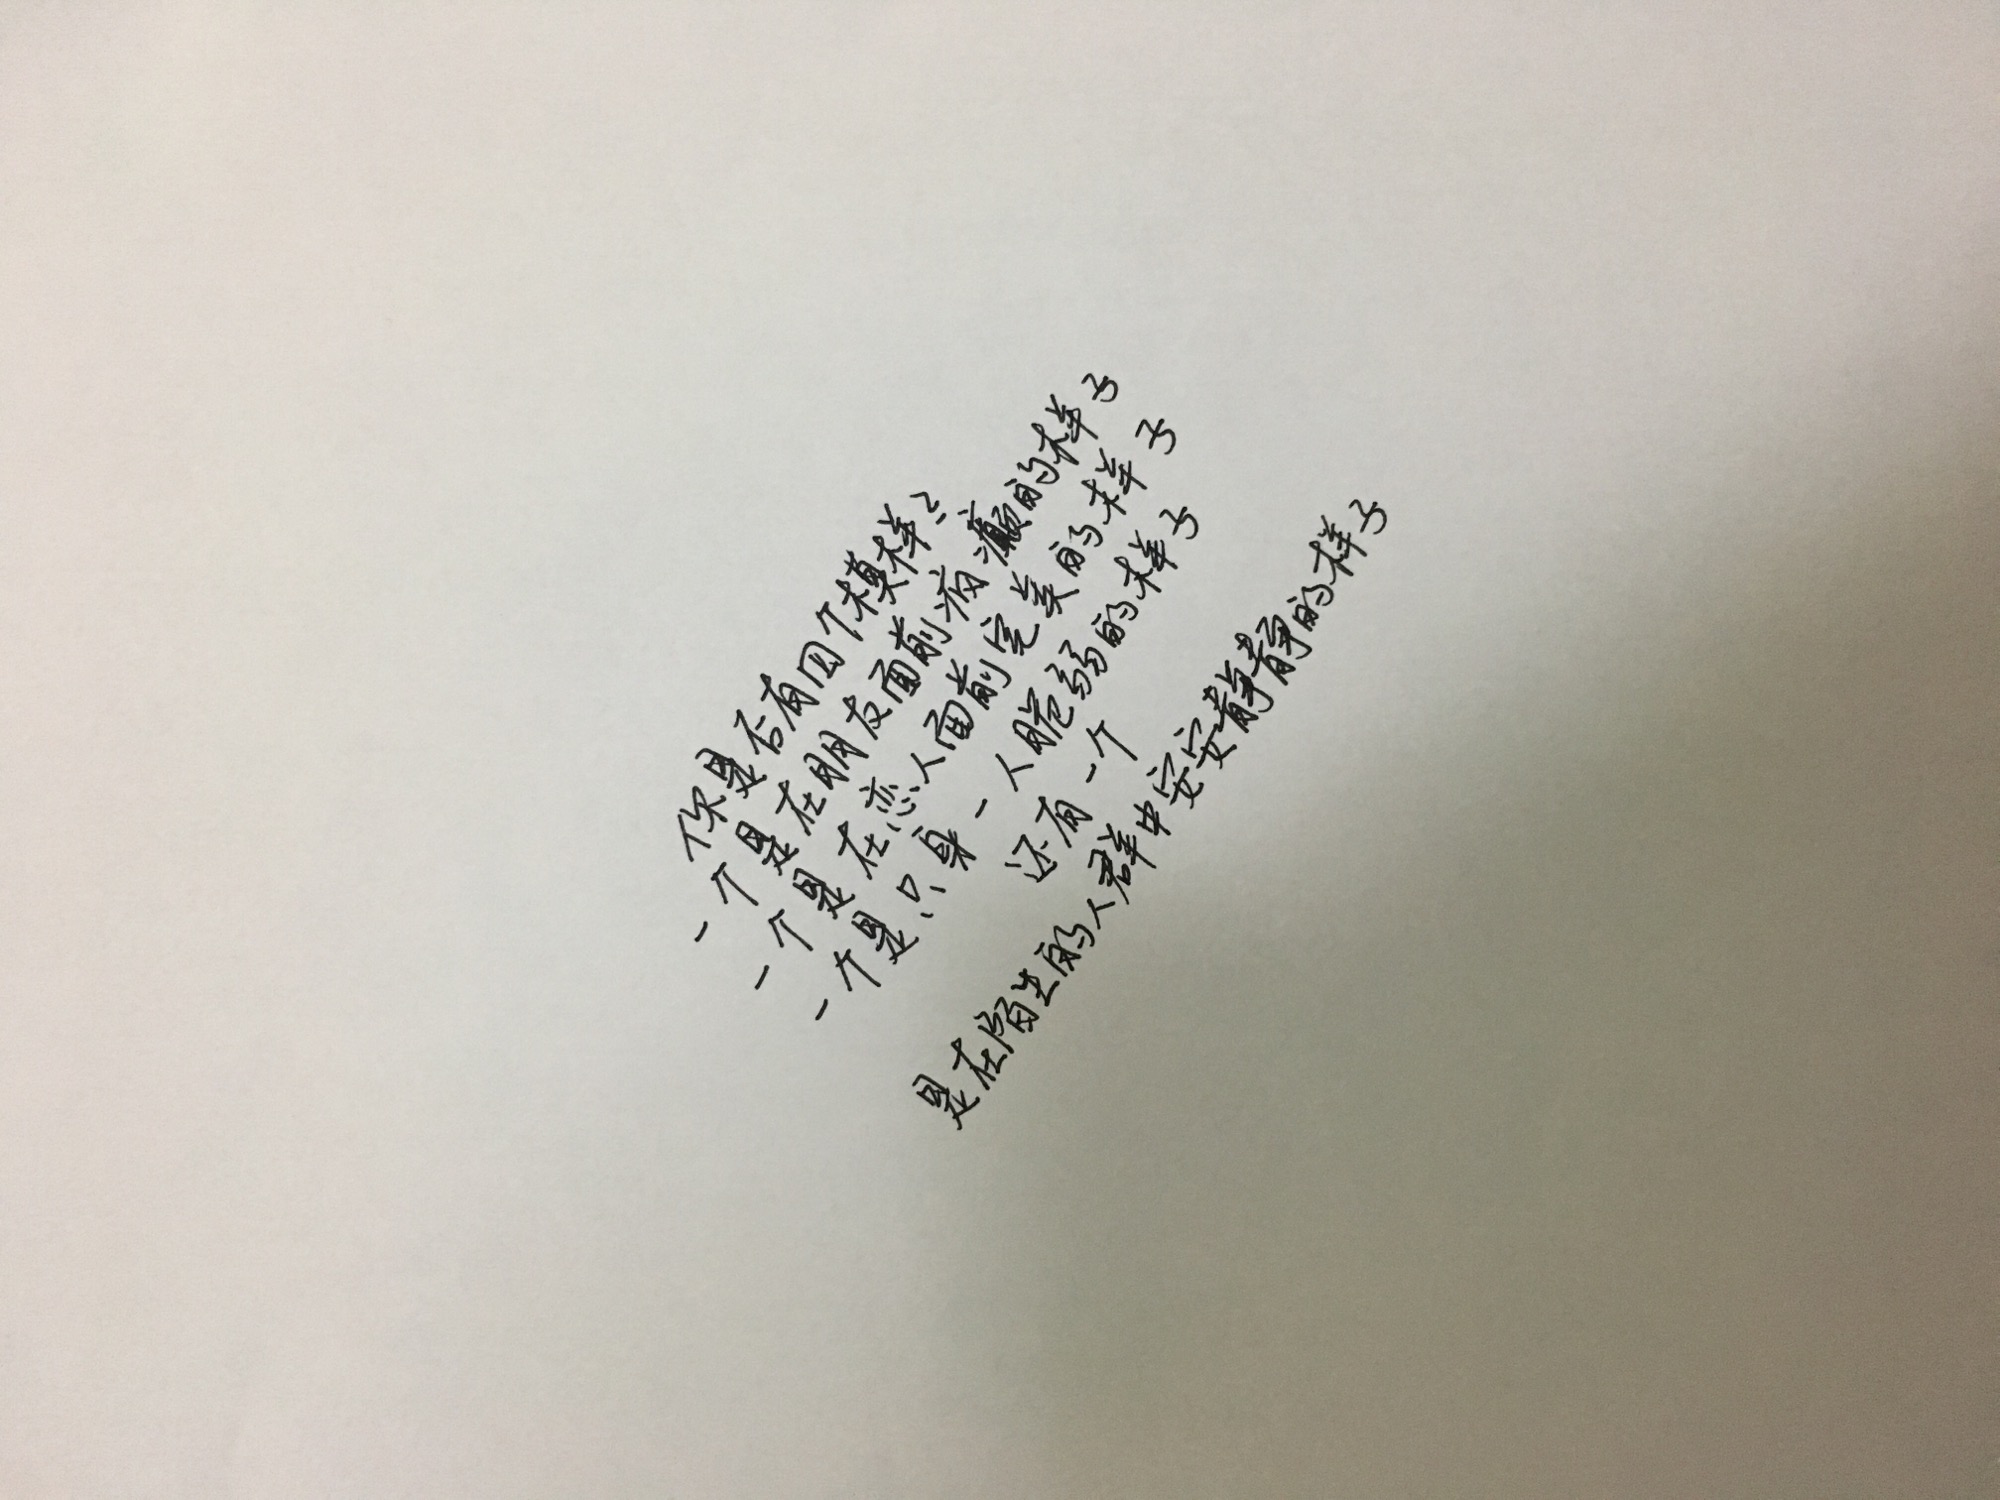 你是否有四个模样？
一个是在朋友面前疯癫的样子
一个是在恋人面前完美的样子
一个是只身一人脆弱的样子
还有一个
是在陌生的人群中安安静静的样子